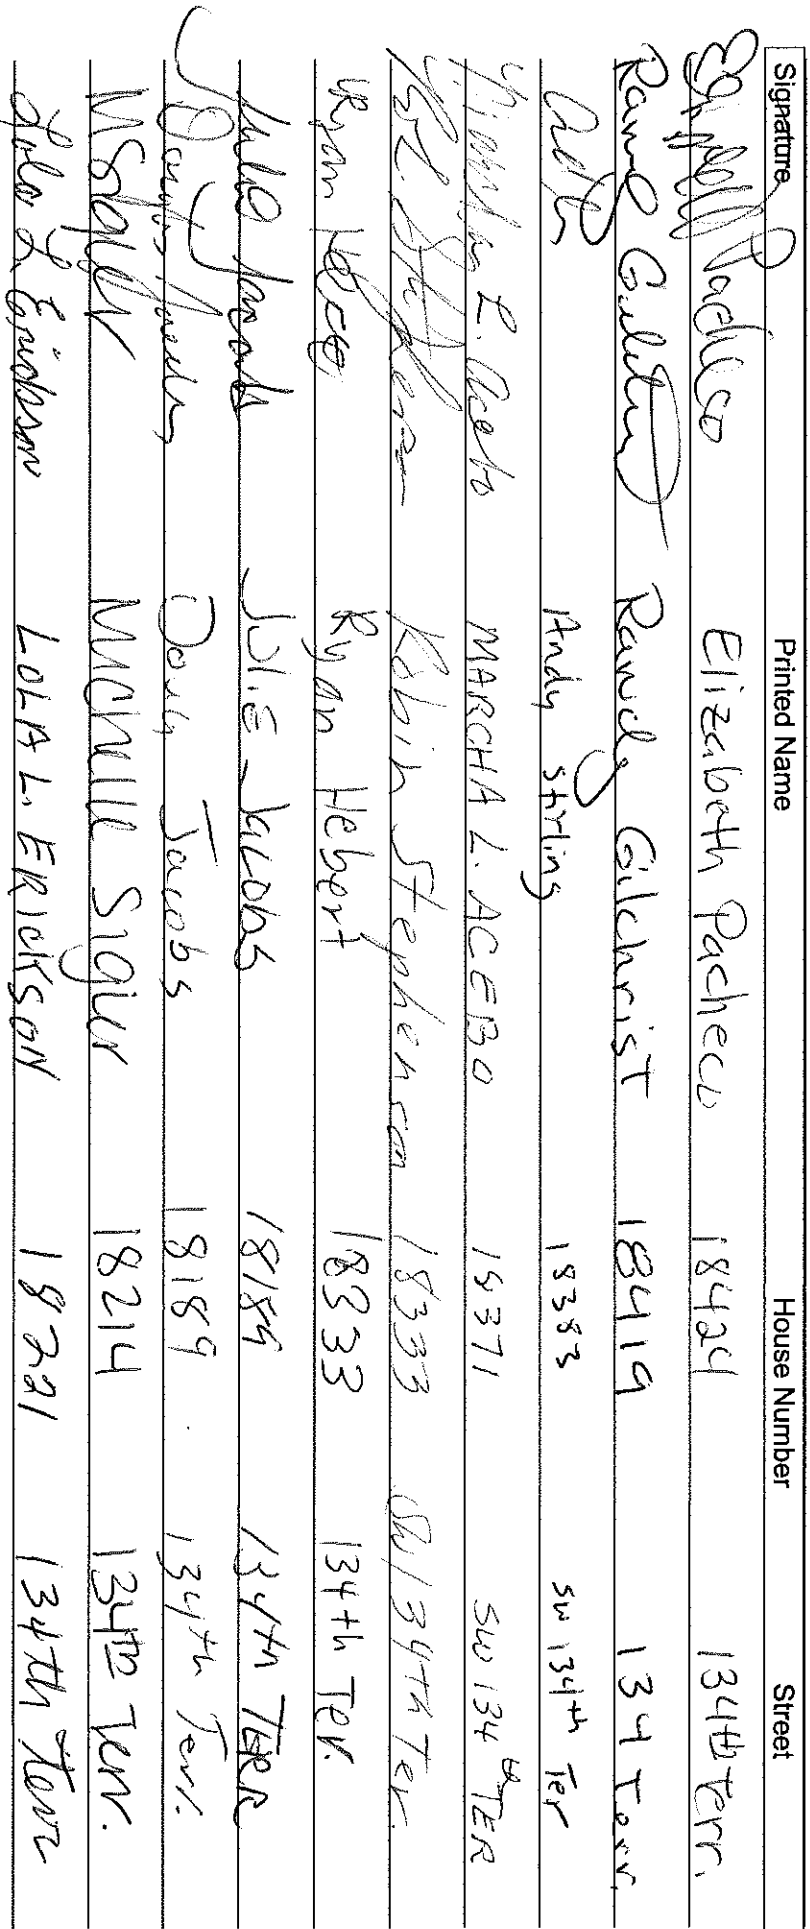 Signature Printed Name House Number Street
Elizabeth Pacheco 18424 134th Terr.
Randy Gilchrist Randy Gilchrist 18419 134 Terr.
Andy Stirling 18383 SW 134th Ter
L. Acebo MARCHA L. ACEBO 18371 SW 134th TER
Robin Stephenson 18333 SW 134th Ter.
Ryan Hebert Ryan Hebert 18333 134th Ter.
Julie Jacobs Julie Jacobs 18189 134th TERR
Douglas Jacobs Doug Jacobs 18189 134th Terr.
MSigler Michelle Sigler 18214 134th Terr.
Lola L Erickson LOLA L. ERICKSON 18221 134th Terr